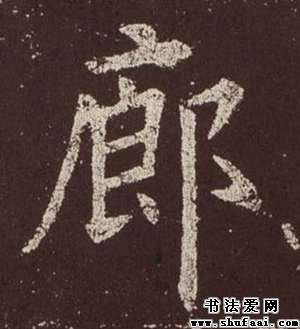 廊
书法爱网
www.shufaai.com